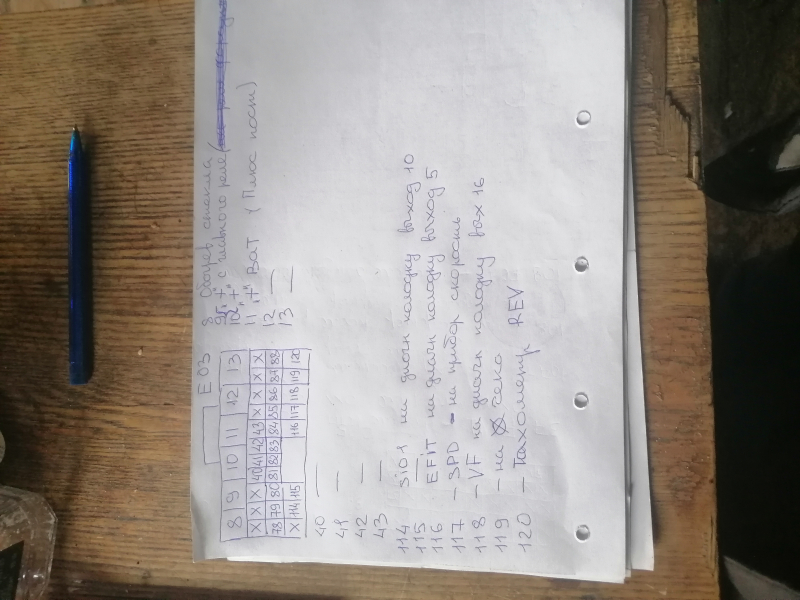 E03
8 9 10 11 12 13
X X X 40 41 42 43 X X X X
78 79 80 81 82 83 84 85 86 87 88
X 114 115 116 117 118 119 120
8 Обогрев стекла
9 "+" с главного реле (
10 "+"
11 "+" BAT (Плюс пост)
12 —
13 —
40 —
41 —
42 —
43 —
114 SIO1 на диагн колодку выход 10
115 —
116 EFIT на диагн колодку выход 5
117 – SPD – на прибор скорость
118 – VF на диагн колодку вых 16
119 – на чеко
120 – Тахометр REV